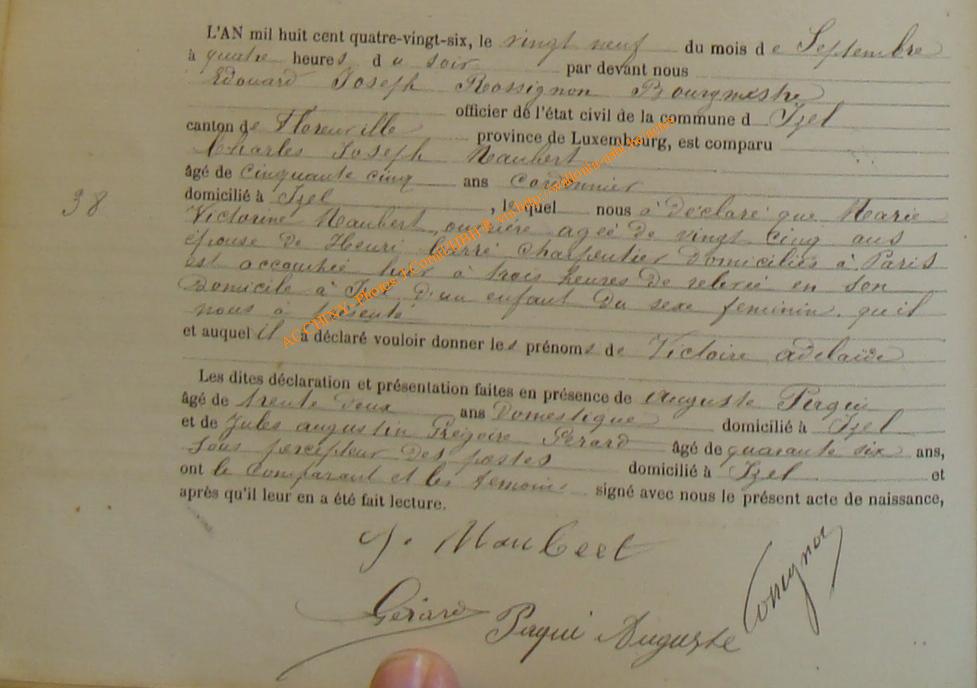 L'AN mil huit cent quatre-vingt-six, le vingt neuf du mois de Septembre
à quatre heures du soir par devant nous
Edouard Joseph Rossignon Bourgmestre
officier de l'état civil de la commune d Izel
canton de Florenville province de Luxembourg, est comparu
Charles Joseph Maubert
âgé de cinquante cinq ans cordonnier
38
domicilié à Izel, lequel nous à déclaré que Marie
Victorine Maubert, ouvrière agée de vingt cinq ans
épouse de Henri Carré charpentier domiciliés à Paris
est accouchée hier à trois heures de relevée en son
domicile à Izel d'un enfant du sexe feminin. qu'il
nous à présenté
et auquel il a déclaré vouloir donner les prénoms de Victoire adelaïde
Les dites déclaration et présentation faites en présence de auguste Perqui
âgé de trente deux ans Domestique domicilié à Izel
et de Jules augustin Grégoire Gérard âgé de quarante six ans,
sous percepteur des postes domicilié à Izel et
ont le comparant et les temoins signé avec nous le présent acte de naissance,
après qu'il leur en a été fait lecture.
J. Maubert
Gérard
Perqui Auguste